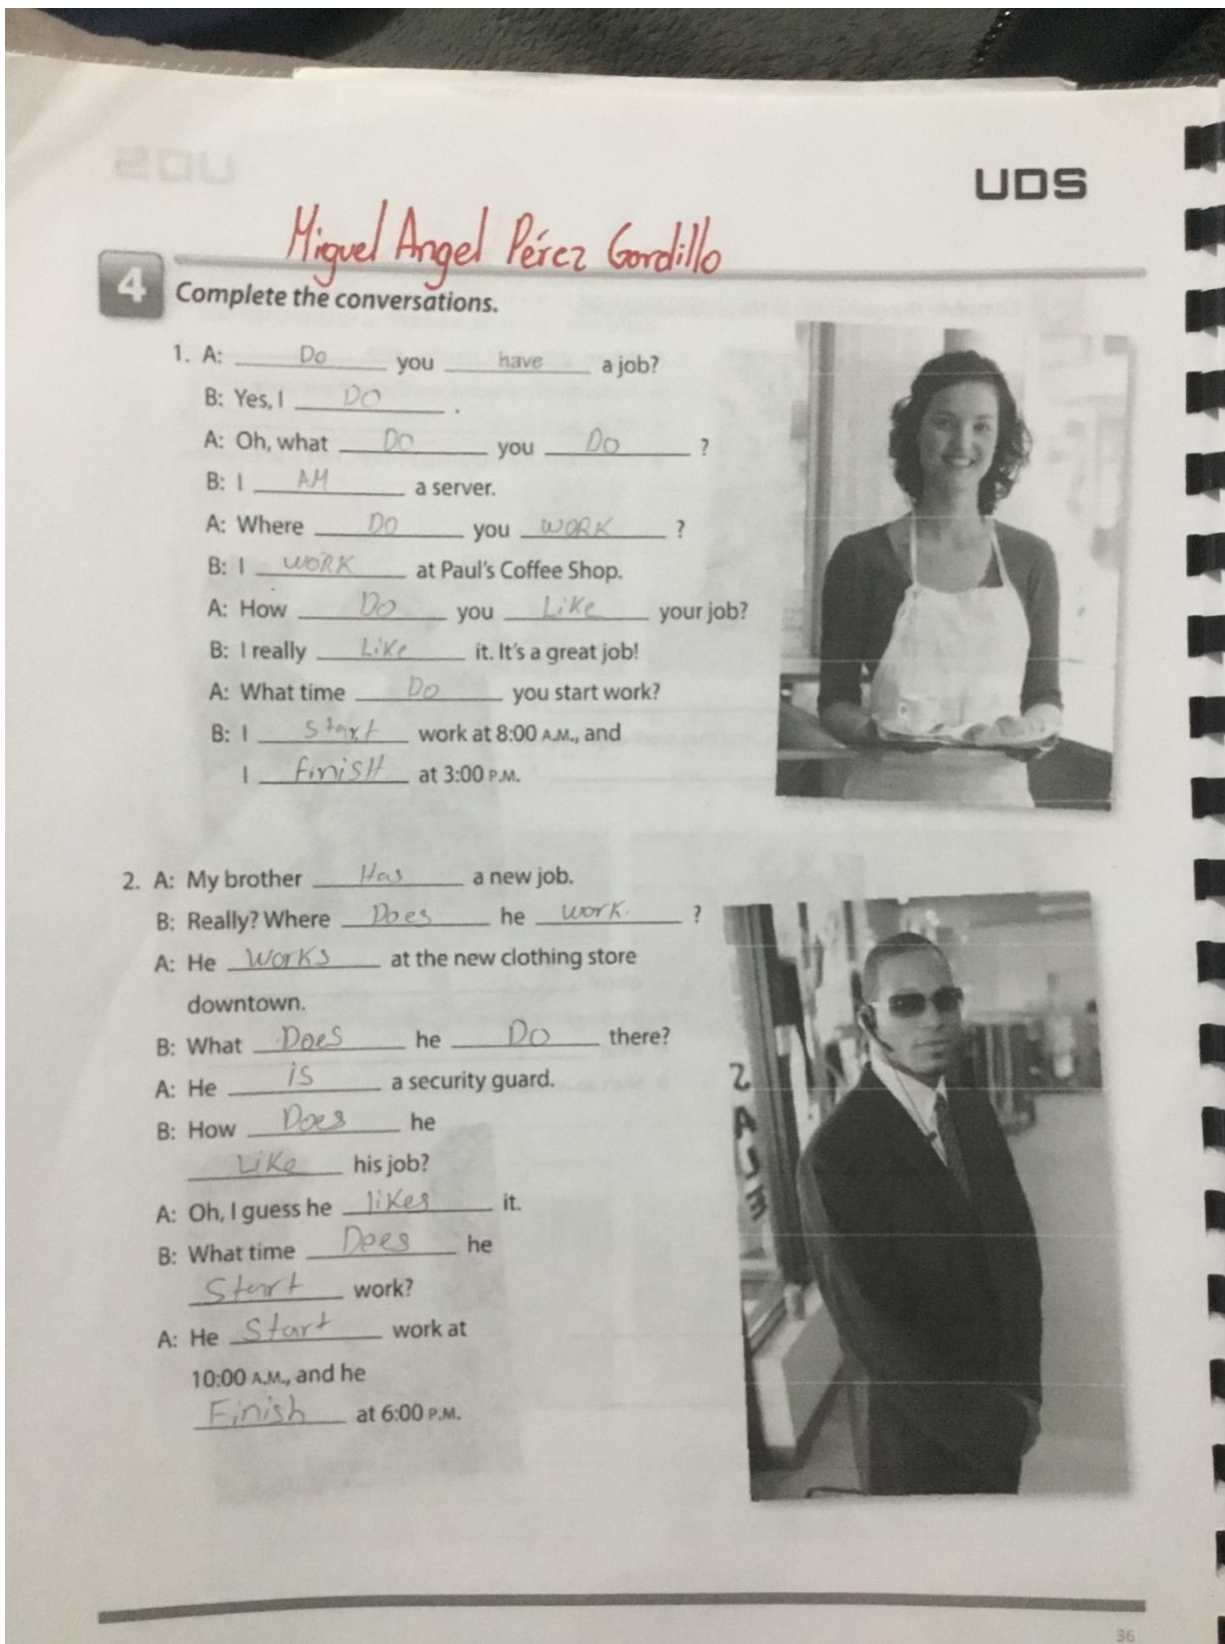 UDS
Miguel Angel Pérez Gordillo
4 Complete the conversations.
1. A: Do you have a job?
B: Yes, I DO .
A: Oh, what DO you DO ?
B: I AM a server.
A: Where DO you WORK ?
B: I WORK at Paul's Coffee Shop.
A: How DO you Like your job?
B: I really Like it. It's a great job!
A: What time DO you start work?
B: I Start work at 8:00 A.M., and
I FinisH at 3:00 P.M.
2. A: My brother Has a new job.
B: Really? Where Does he work. ?
A: He WorKs at the new clothing store
downtown.
B: What Does he DO there?
A: He is a security guard.
B: How Does he
LiKe his job?
A: Oh, I guess he liKes it.
B: What time Does he
Start work?
A: He Start work at
10:00 A.M., and he
Finish at 6:00 P.M.
SALE
36